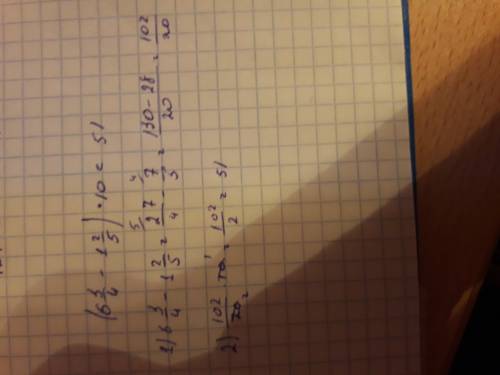 (6 3/4 - 1 2/5) · 10 = 51
1) 6 3/4 - 1 2/5 = 27/4 ⁵ - 7/5 ⁴ = (130 - 28)/20 = 102/20
2) 102/20 ₂ · 10 ¹ = 102/2 = 51